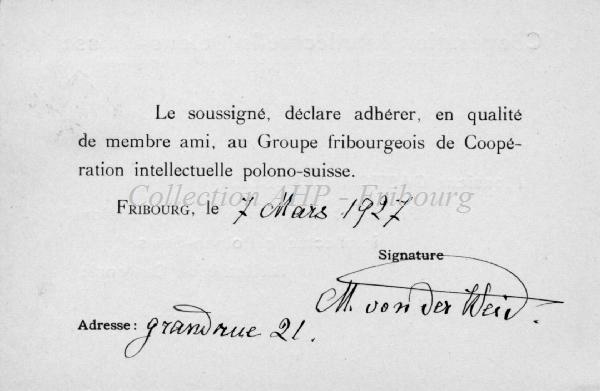 Le soussigné, déclare adhérer, en qualité
de membre ami, au Groupe fribourgeois de Coopé-
ration intellectuelle polono-suisse.
Collection AHP - Fribourg
FRIBOURG, le 7 Mars 1927
Signature
M. von der Weid.
Adresse: grandrue 21.